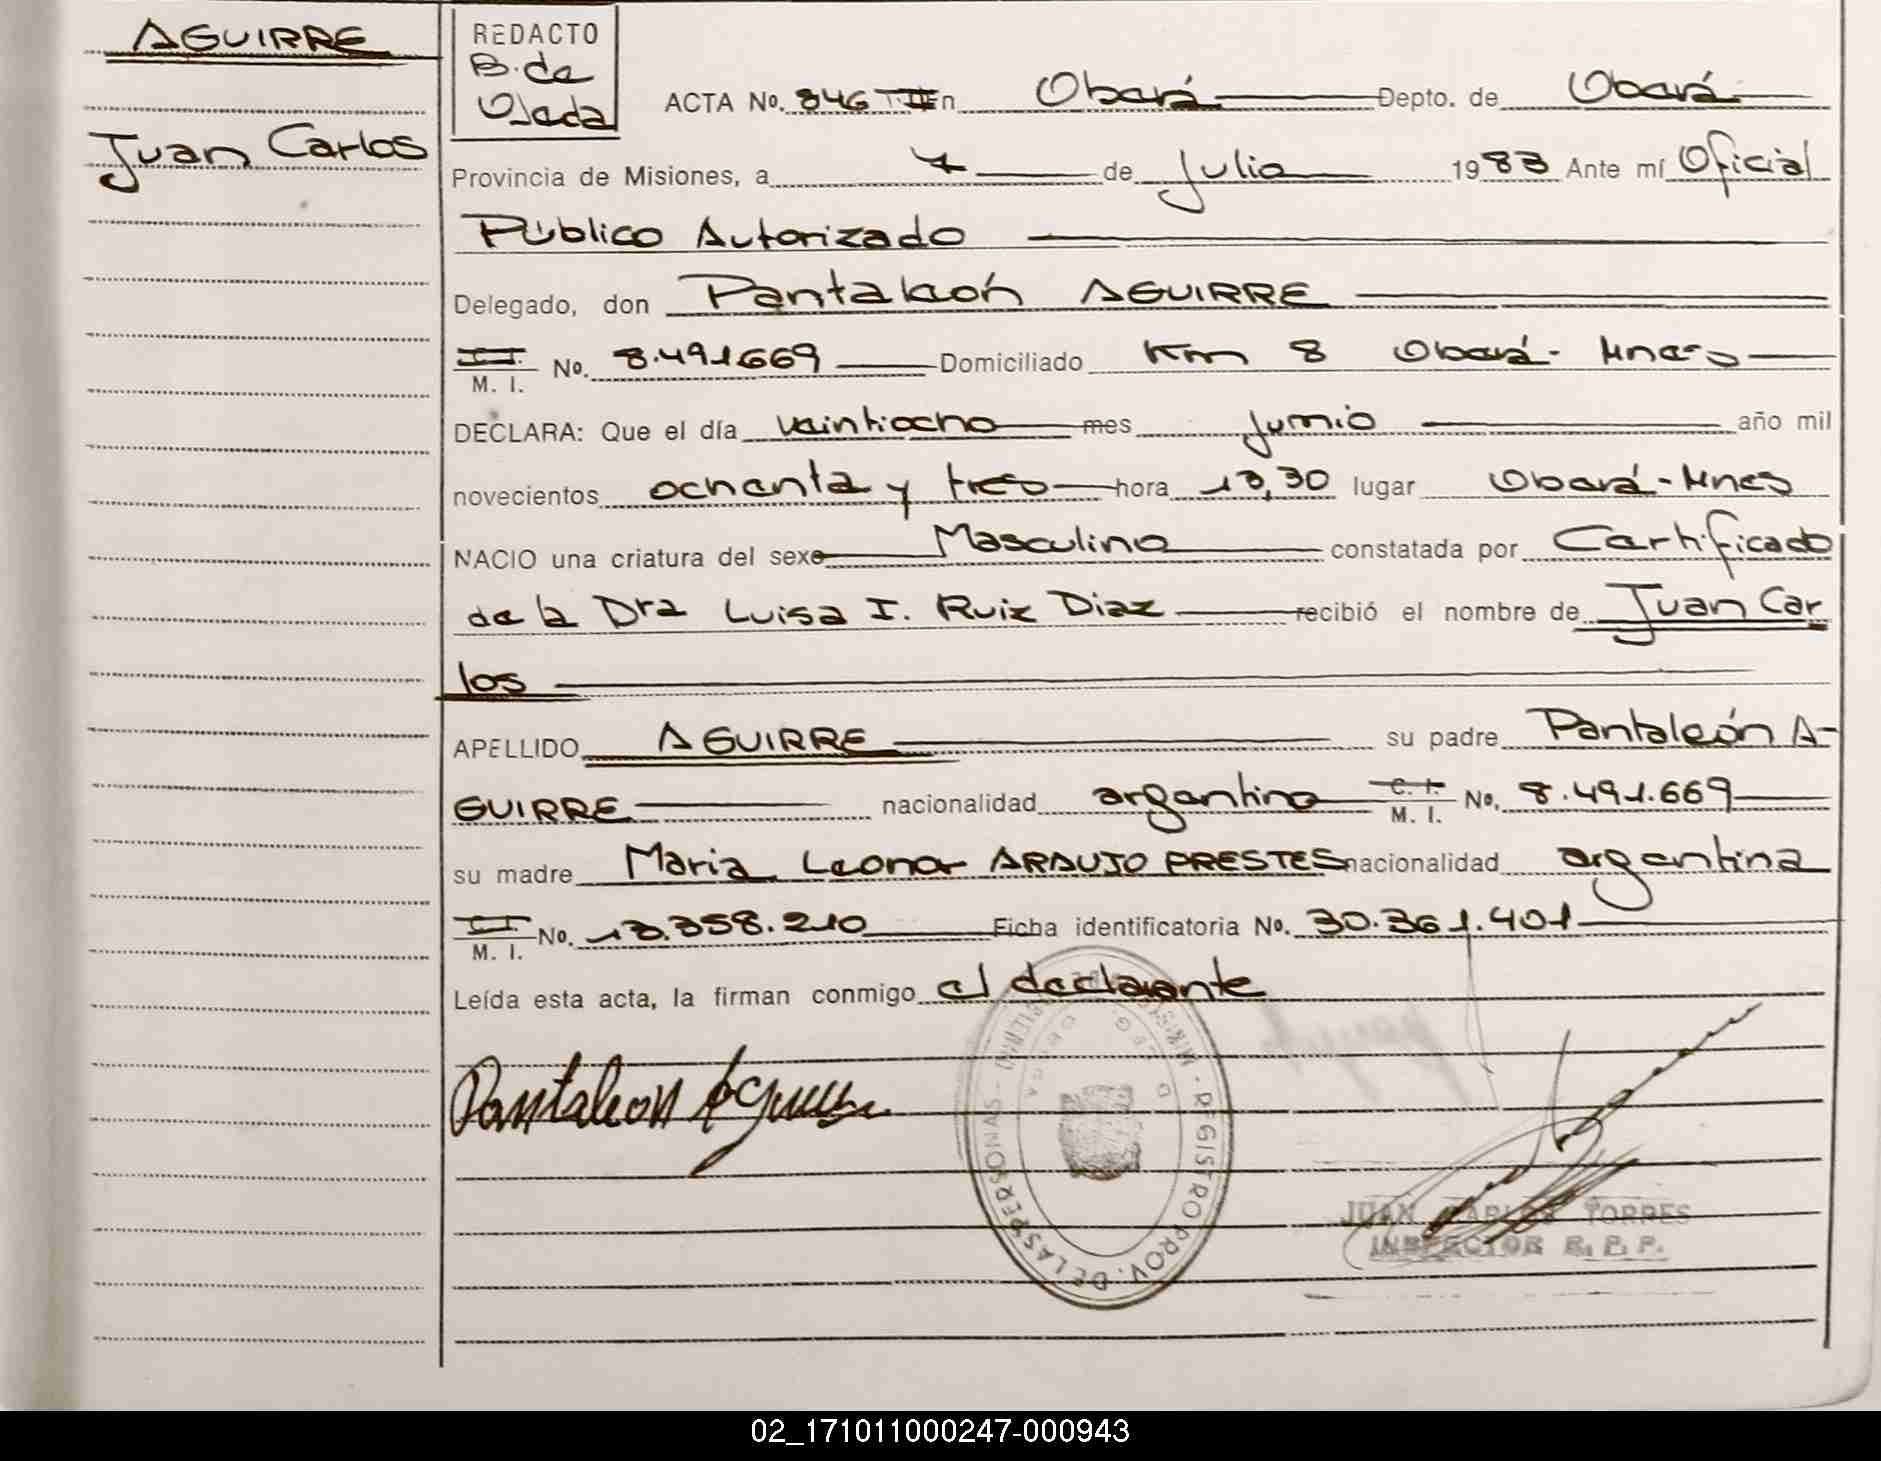 AGUIRRE
Juan Carlos
REDACTO
B. de
Ojeda
ACTA No. 846 T. II En Oberá Depto. de Oberá
Provincia de Misiones, a 4 de Julio 1983 Ante mí Oficial
Público Autorizado
Delegado, don Pantaleón AGUIRRE
M. I. No. 8.491669 Domiciliado Km 8 Oberá - Mnes
DECLARA: Que el día veintiocho mes junio año mil
novecientos ochenta y tres hora 13,30 lugar Oberá - Mnes
NACIO una criatura del sexo Masculino constatada por Certificado
de la Dra Luisa I. Ruiz Diaz recibió el nombre de Juan Car
los
APELLIDO AGUIRRE su padre Pantaleón A-
GUIRRE nacionalidad argentino C. I. M. I. No. 8.491.669
su madre Maria Leonor ARAUJO PRESTES nacionalidad argentina
M. I. No. 13.358.210 Ficha identificatoria No. 30.361.401
Leída esta acta, la firman conmigo el declarante
Pantaleon Aguirre
REGISTRO PROV. DE LAS PERSONAS
JUAN CARLOS TORRES
INSPECTOR R. P. P.
02_171011000247-000943